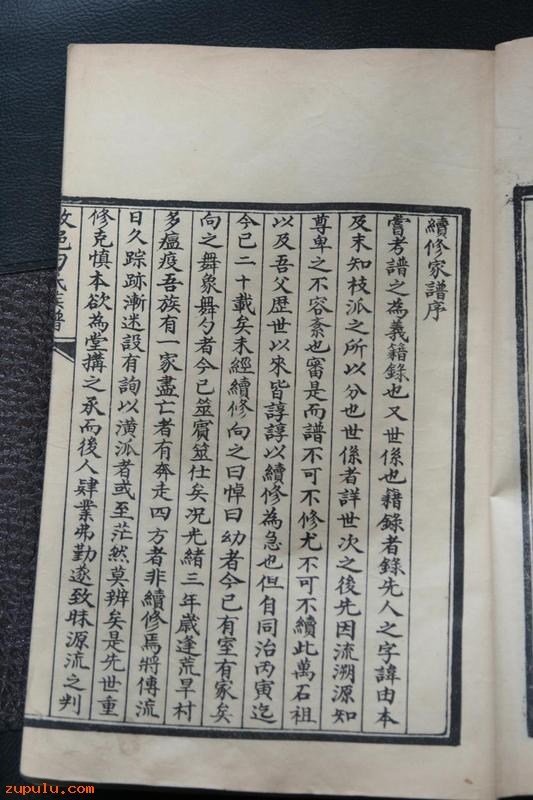 續修家譜序
嘗考譜之為義籍錄也又世係也籍錄者錄先人之字諱由本
及末知枝派之所以分也世係者詳世次之後先因流溯源知
尊卑之不容紊也審是而譜不可不修尤不可不續此萬石祖
以及吾父歷世以來皆諄諄以續修為急也但自同治丙寅迄
今已二十載矣未經續修向之曰悼曰幼者今已有室有家矣
向之舞象舞勺者今已筮賓筮仕矣况光緒三年歲逢荒旱村
多瘟疫吾族有一家盡亡者有奔走四方者非續修焉將傳流
日久踪跡漸迷設有詢以潢派者或至茫然莫辨矣是先世重
修克慎本欲為堂搆之承而後人肄業弗勤遂致昧源流之判
邑 氏族譜
zupulu.com